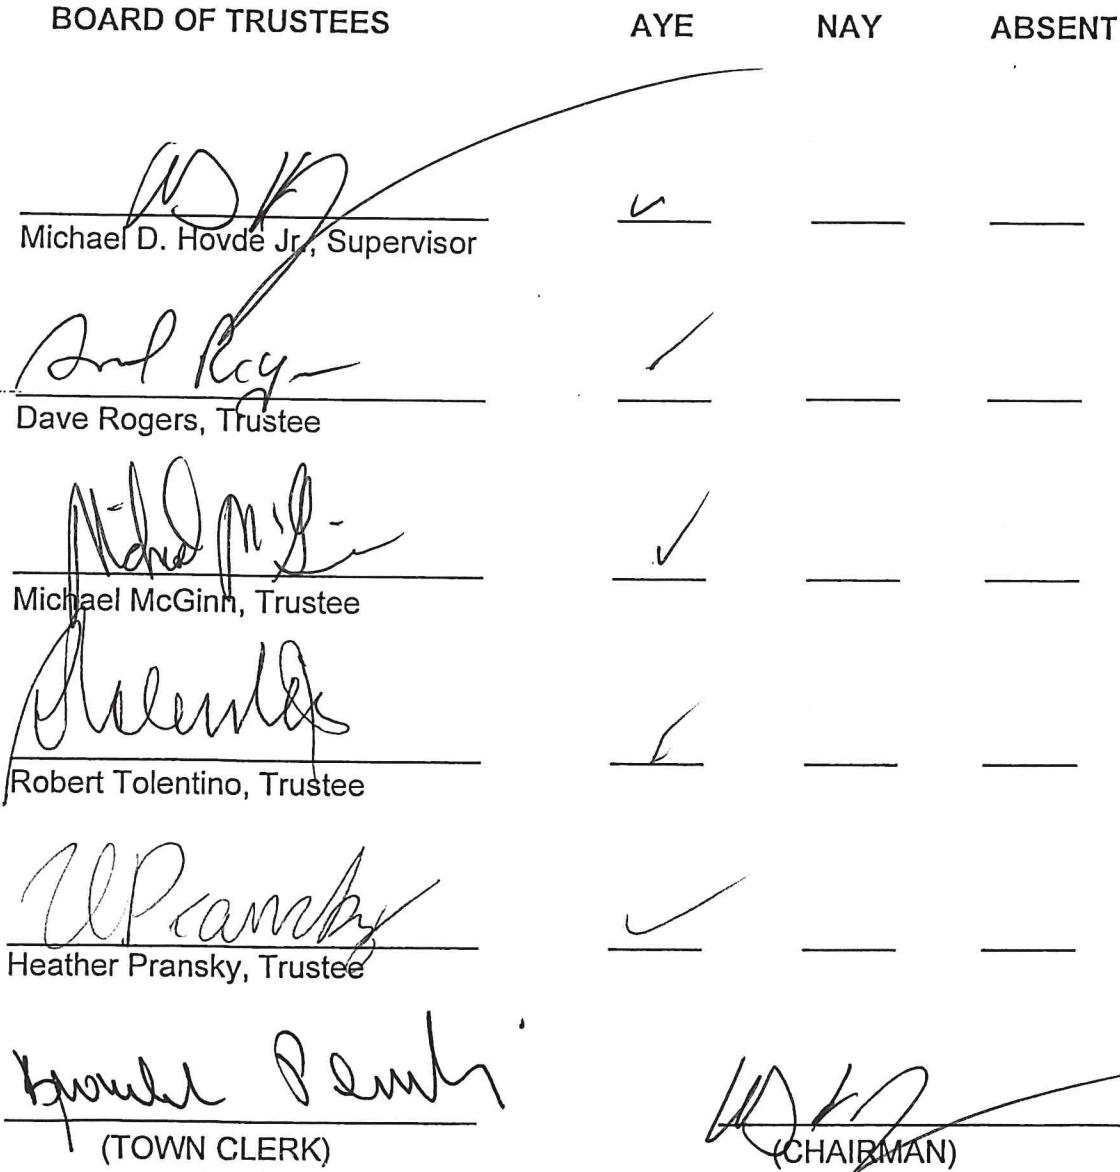 BOARD OF TRUSTEES AYE NAY ABSENT
Michael D. Hovde Jr., Supervisor
Dave Rogers, Trustee
Michael McGinn, Trustee
Robert Tolentino, Trustee
H Pransky
Heather Pransky, Trustee
(TOWN CLERK) (CHAIRMAN)